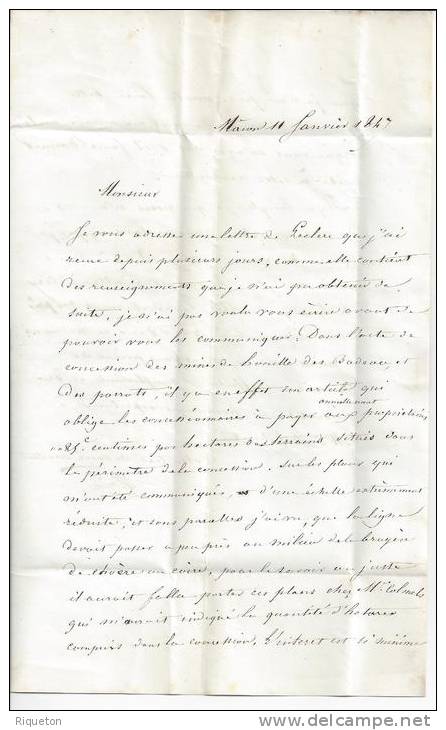 Mâcon 11 Janvier 1847
Monsieur
Je vous adresse une lettre de Leclerc que j'ai
reçue depuis plusieurs jours, comme elle contient
des renseignements que je n'ai pu obtenir de
suite, je n'ai pas voulu vous écrire avant de
pouvoir vous les communiquer. Dans l'acte de
concession des mines de houille des Badeau et
des porrots, il y a en effet un article qui
annuellement
oblige les concessionnaires à payer aux propriétaires
25c centimes par hectares des terrains situés dans
le périmètre de la concession. Sur les plans qui
m'ont été communiqués, d'une échelle extrêmement
réduite, et sans parallèles j'ai vu, que la ligne
devait passer à peu près au milieu de la bruyère
de, pour le savoir au juste
il aurait fallu porter ces plans chez Mr
qui m'aurait indiqué la quantité d'hectares
compris dans la concession. L'interet est si minime
Riqueton
delcampe.net